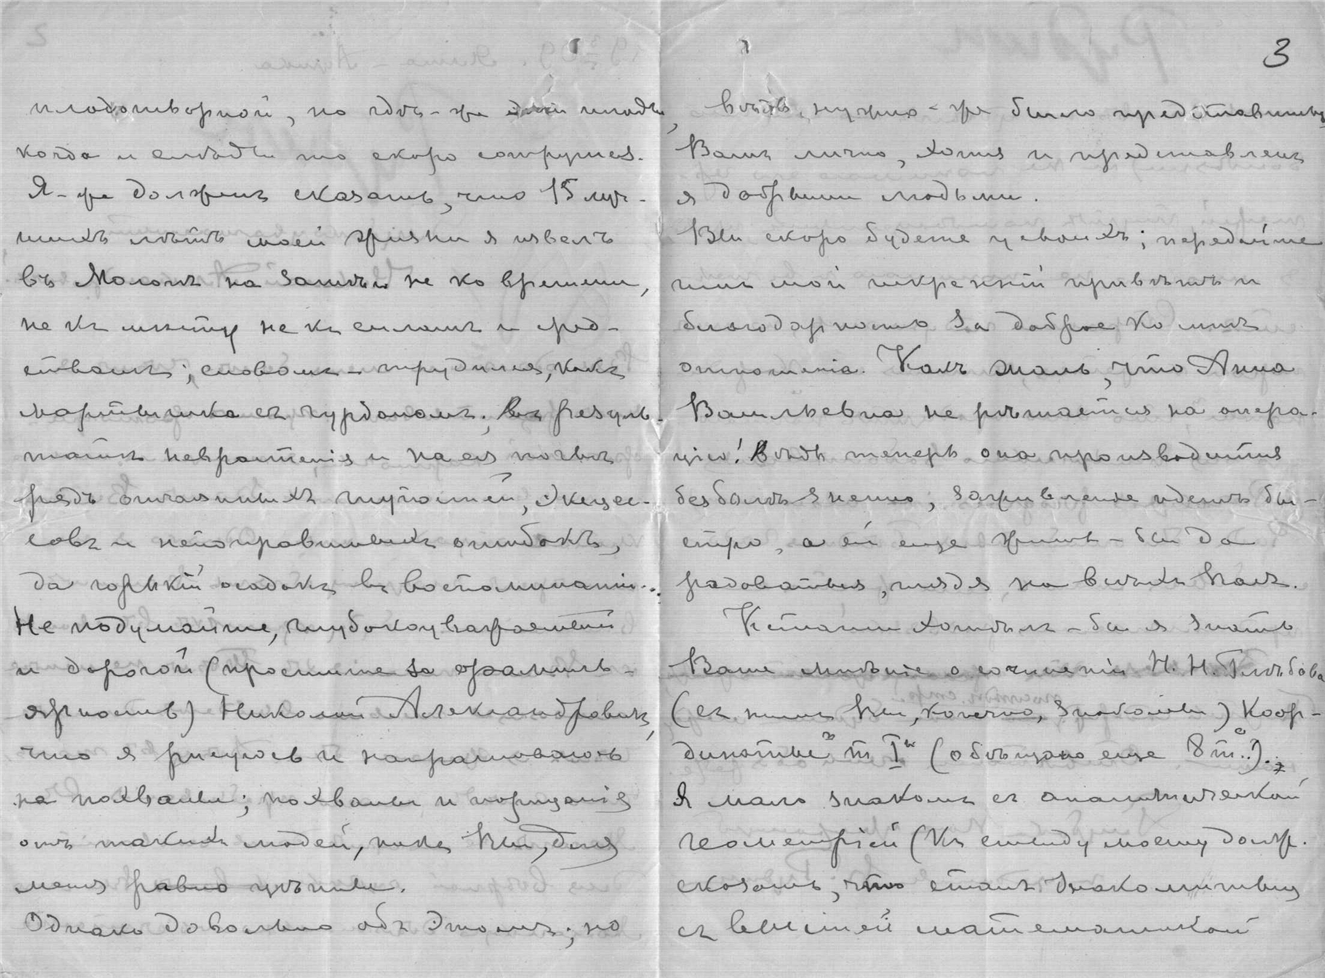 плодотворной, но гдѣ-же плоды,
когда и слѣды то скоро сотрутся.
Я-же долженъ сказать, что 15 луч-
шихъ лѣтъ моей жизни я извелъ
въ на не ко времени,
не къ мѣсту не къ силамъ и сред-
ствамъ; словомъ – трудился, какъ
мартышка съ чурбаномъ. Въ резуль-
татѣ неврастенія и на ея почвѣ
рядъ отчаянныхъ глупостей, эксцес-
совъ и непоправимыхъ ошибокъ,
да горькій осадокъ въ воспоминаніи...
Не подумайте, глубокоуважаемый
и дорогой (простите за фамиль-
ярность) Николай Александровичъ,
что я рисуюсь и напрашиваюсь
на похвалы; похвалы и порицанія
отъ такихъ людей, какъ Вы, для
меня равно цѣнны.
Однако довольно объ этомъ; но
3
вѣдь, нужно-же было представиться
Вамъ лично, хотя и представленъ
я добрыми людьми.
Вы скоро будете у своихъ; передайте
имъ мой искренній привѣтъ и
благодарность за доброе ко мнѣ
отношеніе. Какъ жаль, что Анна
Васильевна не рѣшается на опера-
цію! Вѣдь теперь она производится
безболѣзненно; заживленіе идетъ бы-
стро, а ей еще жить-бы да
радоваться, глядя на всѣхъ Васъ.
Кстати хотѣлъ-бы я знать
Ваше мнѣніе о сочиненіи Н. Н. Глѣбова
(съ нимъ Вы, конечно, знакомы) Коор-
динаты" т I" (обѣщано еще 8 т.!).
Я мало знакомъ съ аналитической
геометріей (Къ стыду моему долж.
сказать, что сталъ знакомиться
съ высшей математикой